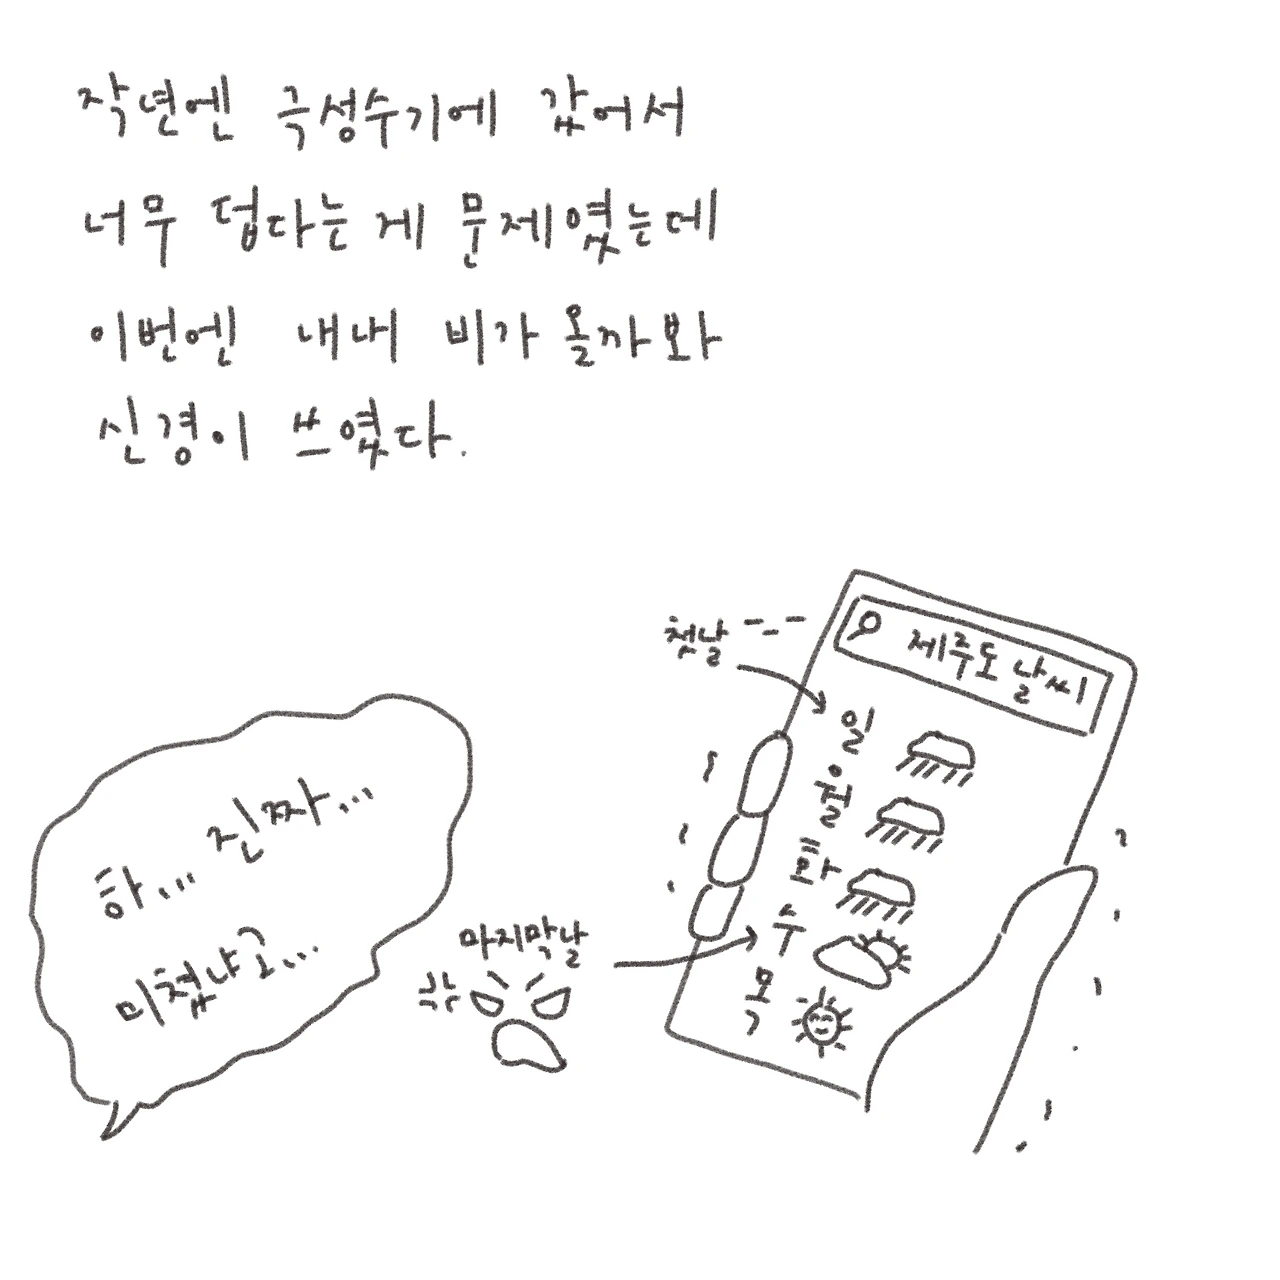 작년엔 극성수기에 갔어서
너무 덥다는 게 문제였는데
이번엔 내내 비가 올까봐
신경이 쓰였다.
첫날
제주도 날씨
일
월
화
수
목
마지막날
하... 진짜...
미쳤냐고...